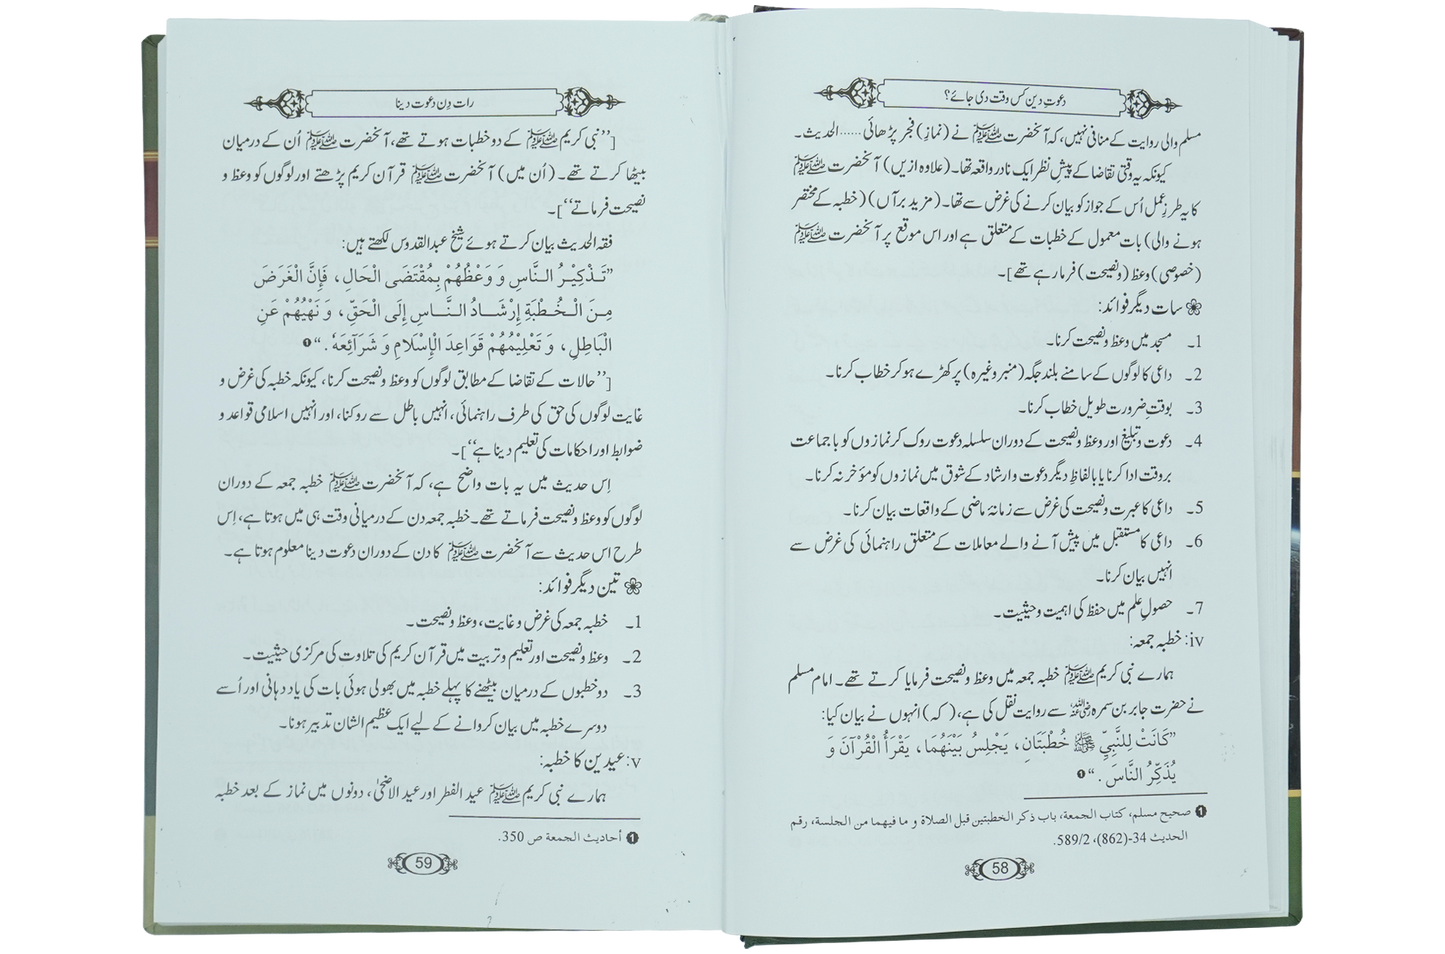 دعوتِ دین کس وقت دی جائے؟
مسلم والی روایت کے منافی نہیں، کہ آنحضرت ﷺ نے (نماز) فجر پڑھائی ...... الحدیث۔
کیونکہ یہ وقتی تقاضا کے پیشِ نظر ایک نادر واقعہ تھا۔ (علاوہ ازیں) آنحضرت ﷺ
کا یہ طرزِ عمل اُس کے جواز کو بیان کرنے کی غرض سے تھا۔ (مزید برآں) (خطبہ کے مختصر
ہونے والی) بات معمول کے خطبات کے متعلق ہے اور اس موقع پر آنحضرت ﷺ
(خصوصی) وعظ (ونصیحت) فرما رہے تھے]۔
❀ سات دیگر فوائد:
1۔ مسجد میں وعظ ونصیحت کرنا۔
2۔ داعی کا لوگوں کے سامنے بلند جگہ (منبر وغیرہ) پر کھڑے ہو کر خطاب کرنا۔
3۔ بوقتِ ضرورت طویل خطاب کرنا۔
4۔ دعوت وتبلیغ اور وعظ ونصیحت کے دوران سلسلہ دعوت روک کر نمازوں کو باجماعت
بروقت ادا کرنا یا بالفاظِ دیگر دعوت وارشاد کے شوق میں نمازوں کو مؤخر نہ کرنا۔
5۔ داعی کا عبرت ونصیحت کی غرض سے زمانۂ ماضی کے واقعات بیان کرنا۔
6۔ داعی کا مستقبل میں پیش آنے والے معاملات کے متعلق راہنمائی کی غرض سے
انہیں بیان کرنا۔
7۔ حصولِ علم میں حفظ کی اہمیت وحیثیت۔
iv: خطبہ جمعہ:
ہمارے نبی کریم ﷺ خطبہ جمعہ میں وعظ ونصیحت فرمایا کرتے تھے۔ امام مسلم
نے حضرت جابر بن سمرہ رضی اللہ عنہ سے روایت نقل کی ہے، (کہ) انہوں نے بیان کیا:
”كَانَتْ لِلنَّبِيِّ ﷺ خُطْبَتَانِ، يَجْلِسُ بَيْنَهُمَا، يَقْرَأُ الْقُرْآنَ وَ
يُذَكِّرُ النَّاسَ .“ ❶
❶ صحيح مسلم، كتاب الجمعة، باب ذكر الخطبتين قبل الصلاة و ما فيهما من الجلسة، رقم
الحديث 34-(862)، 589/2.
58
رات دِن دعوت دینا
[’’نبی کریم ﷺ کے دو خطبات ہوتے تھے، آنحضرت ﷺ اُن کے درمیان
بیٹھا کرتے تھے۔ (اُن میں) آنحضرت ﷺ قرآن کریم پڑھتے اور لوگوں کو وعظ و
نصیحت فرماتے‘‘]۔
فقہ الحدیث بیان کرتے ہوئے شیخ عبدالقدوس لکھتے ہیں:
”تَـذْكِيْـرُ الـنَّاسِ وَ وَعْظُهُمْ بِمُقْتَضَى الْحَالِ، فَإِنَّ الْغَرَضَ
مِـنَ الْـخُـطْبَةِ إِرْشَـادُ الـنَّـاسِ إِلَى الْحَقِّ، وَ نَهْيُهُمْ عَنِ
الْبَاطِلِ، وَ تَعْلِيْمُهُمْ قَوَاعِدَ الْإِسْلَامِ وَ شَرَائِعَهُ .“ ❶
[’’حالات کے تقاضا کے مطابق لوگوں کو وعظ ونصیحت کرنا، کیونکہ خطبہ کی غرض و
غایت لوگوں کی حق کی طرف راہنمائی، انہیں باطل سے روکنا، اور انہیں اسلامی قواعد و
ضوابط اور احکامات کی تعلیم دینا ہے‘‘]۔
اِس حدیث میں یہ بات واضح ہے، کہ آنحضرت ﷺ خطبہ جمعہ کے دوران
لوگوں کو وعظ ونصیحت فرماتے تھے۔ خطبہ جمعہ دن کے درمیانی وقت ہی میں ہوتا ہے، اِس
طرح اس حدیث سے آنحضرت ﷺ کا دن کے دوران دعوت دینا معلوم ہوتا ہے۔
❀ تین دیگر فوائد:
1۔ خطبہ جمعہ کی غرض وغایت، وعظ ونصیحت۔
2۔ وعظ ونصیحت اور تعلیم وتربیت میں قرآن کریم کی تلاوت کی مرکزی حیثیت۔
3۔ دو خطبوں کے درمیان بیٹھنے کا پہلے خطبہ میں بھولی ہوئی بات کی یاد دہانی اور اُسے
دوسرے خطبہ میں بیان کروانے کے لیے ایک عظیم الشان تدبیر ہونا۔
v: عیدین کا خطبہ:
ہمارے نبی کریم ﷺ عید الفطر اور عید الاضحیٰ، دونوں میں نماز کے بعد خطبہ
❶ أحاديث الجمعة ص 350.
59